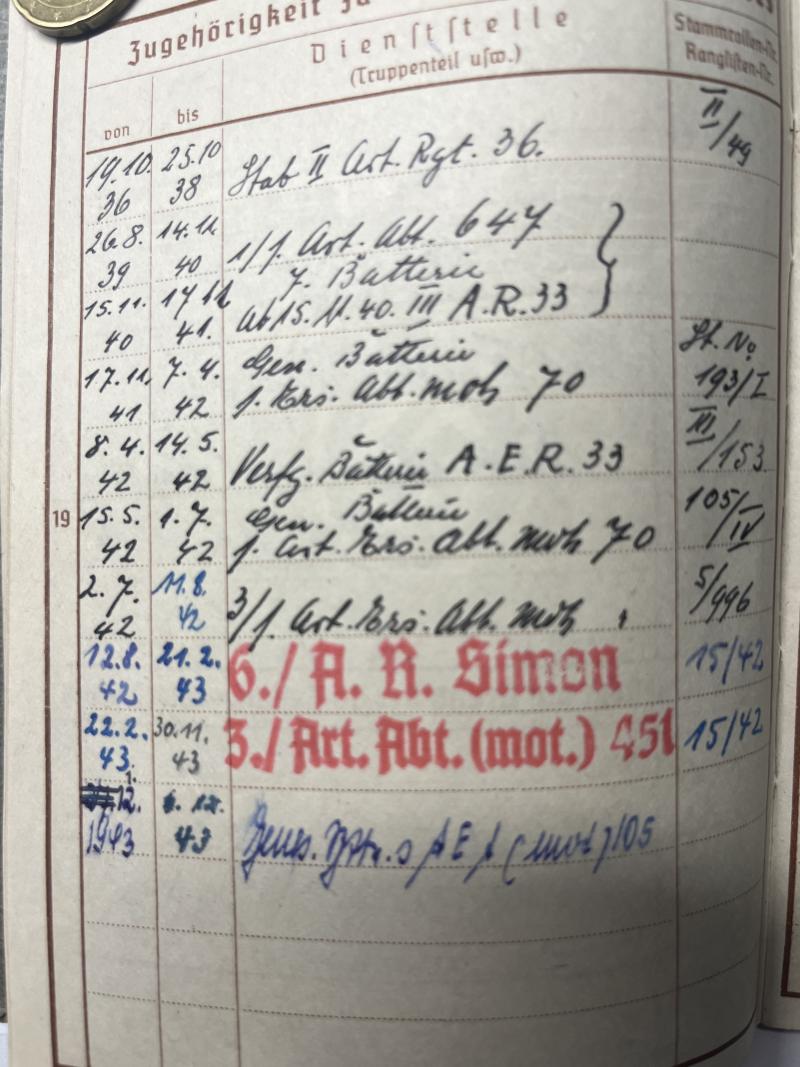 Zugehörigkeit zu
Dienststelle
(Truppenteil usw.)
Stammrollen-Nr.
Ranglisten-Nr.
von
bis
19.10. 25.10 Stab II Art. Rgt. 36. II/49
36 38
26.8. 14.11. 1/f. Art. Abt. 647
39 40 7. Batterie
15.11. 17.11. ab 15.11.40. III A.R. 33
40 41.
17.11. 7.4. Gen. Batterie St. No
41 42 f. Ers. Abt. mot 70 193/I
8.4. 14.5. Verfg. Batterie A.E.R. 33 III/153
42 42
19
15.5. 1.7. Gen. Batterie 105/IV
42 42 f. Art. Ers. Abt. mot 70
2.7. 11.8. 3/f. Art. Ers. Abt. mot 5/996
42 42
12.8. 21.2. 6./ A. R. Simon 15/42
42 43
22.2. 30.11. 3./ Art. Abt. (mot.) 451 15/42
43. 43
1.12.
1943 43 (mot) 105